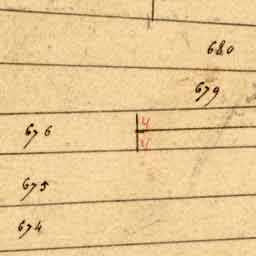 680
679
4
676
4
675
674